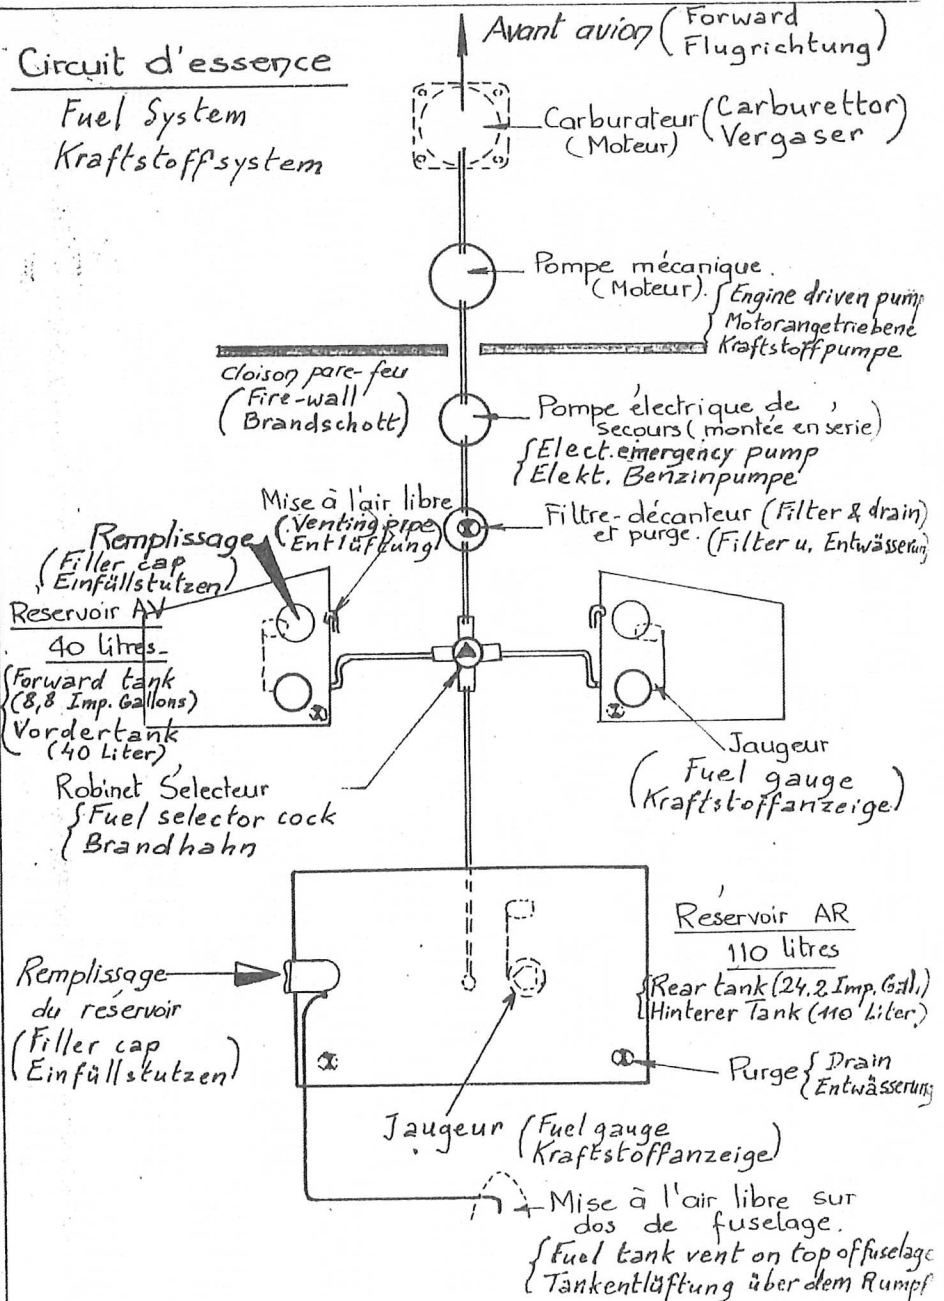 Circuit d'essence
Fuel System
Kraftstoffsystem
Avant avion (Forward
Flugrichtung)
Carburateur (Carburettor
(Moteur) Vergaser)
Pompe mécanique.
(Moteur). {Engine driven pump
Motorangetriebene
Kraftstoffpumpe
cloison pare-feu
(Fire-wall
Brandschott)
Pompe électrique de
secours (montée en serie)
{Elect. emergency pump
Elekt. Benzinpumpe
Mise à l'air libre
(Venting pipe
Entlüftung)
Filtre-décanteur (Filter & drain)
et purge. (Filter u. Entwässerung
Remplissage
(Filler cap
Einfüllstutzen)
Reservoir AV
40 litres-
{Forward tank
(8,8 Imp. Gallons)
Vordertank
(40 Liter)
Jaugeur
(Fuel gauge
Kraftstoffanzeige)
Robinet Sélecteur
{Fuel selector cock
Brandhahn
Réservoir AR
110 litres
{Rear tank (24.2 Imp. Gal.)
Hinterer Tank (110 Liter)
Remplissage
du réservoir
(Filler cap
Einfüllstutzen)
Purge {Drain
Entwässerung
Jaugeur (Fuel gauge
Kraftstoffanzeige)
Mise à l'air libre sur
dos de fuselage.
{Fuel tank vent on top of fuselage
Tankentlüftung über dem Rumpf